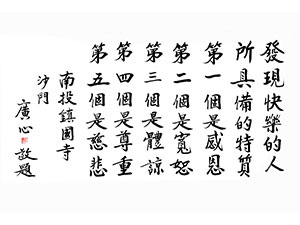 發現快樂的人
所具備的特質
第一個是感恩
第二個是寬恕
第三個是體諒
第四個是尊重
第五個是慈悲
南投鎮國寺
沙門
廣心 敬題